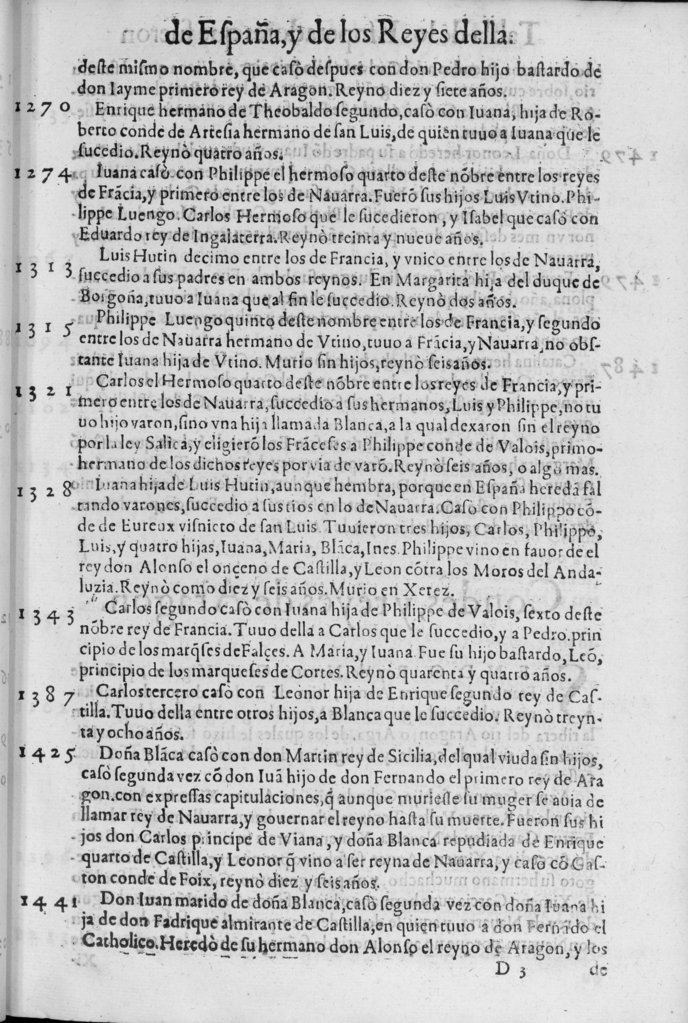 de España, y de los Reyes della.
deste mismo nombre, que casò despues con don Pedro hijo bastardo de
don Iayme primero rey de Aragon. Reyno diez y siete años.
1270 Enrique hermano de Theobaldo segundo, casò con Iuana, hija de Ro-
berto conde de Artesia hermano de san Luis, de quien tuuo a Iuana que le
sucedio. Reynò quatro años.
1274 Iuana casò con Philippe el hermoso quarto deste nõbre entre los reyes
de Frãcia, y primero entre los de Nauarra. Fuerõ sus hijos Luis Vtino. Phi-
lippe Luengo. Carlos Hermoso que le sucedieron, y Isabel que casó con
Eduardo rey de Ingalaterra. Reynò treinta y nueue años.
1313 Luis Hutin decimo entre los de Francia, y vnico entre los de Nauarra,
succedio a sus padres en ambos reynos. En Margarita hija del duque de
Borgoña, tuuo a Iuana que al fin le succedio. Reynò dos años.
1315 Philippe Luengo quinto deste nombre entre los de Francia, y segundo
entre los de Nauarra hermano de Vtino, tuuo a Frãcia, y Nauarra, no obs-
tante Iuana hija de Vtino. Murio sin hijos, reynò seis años.
1321 Carlos el Hermoso quarto deste nõbre entre los reyes de Francia, y pri-
mero entre los de Nauarra, succedio a sus hermanos, Luis y Philippe, no tu
uo hijo varon, sino vna hija llamada Blanca, a la qual dexaron sin el reyno
por la ley Salica, y eligierõ los Frãceses a Philippe conde de Valois, primo-
hermano de los dichos reyes por via de varõ. Reynò seis años, o algo mas.
1328 Iuana hija de Luis Hutin, aunque hembra, porque en España heredã fal
tando varones, succedio a sus tios en lo de Nauarra. Casò con Philippo cõ-
de de Eureux visnieto de san Luis. Tuuieron tres hijos, Carlos, Philippe,
Luis, y quatro hijas, Iuana, Maria, Blãca, Ines. Philippe vino en fauor de el
rey don Alonso el onçeno de Castilla, y Leon cõtra los Moros del Anda-
luzia. Reynò como diez y seis años. Murio en Xerez.
1343 Carlos segundo casò con Iuana hija de Philippe de Valois, sexto deste
nõbre rey de Francia. Tuuo della a Carlos que le succedio, y a Pedro prin
cipio de los marq̃ses de Falçes. A Maria, y Iuana. Fue su hijo bastardo, Leõ,
principio de los marqueses de Cortes. Reynò quarenta y quatro años.
1387 Carlos tercero casò con Leonor hija de Enrique segundo rey de Cas-
tilla. Tuuo della entre otros hijos, a Blanca que le succedio. Reynò treyn-
ta y ocho años.
1425 Doña Blãca casò con don Martin rey de Sicilia, del qual viuda sin hijos,
casò segunda vez cõ don Iuã hijo de don Fernando el primero rey de Ara
gon. con expressas capitulaciones, q̃ aunque muriesse su muger se auia de
llamar rey de Nauarra, y gouernar el reyno hasta su muerte. Fueron sus hi
jos don Carlos principe de Viana, y doña Blanca repudiada de Enrique
quarto de Castilla, y Leonor q̃ vino a ser reyna de Nauarra, y casò cõ Gas-
ton conde de Foix, reynò diez y seis años.
1441 Don Iuan marido de doña Blanca, casò segunda vez con doña Iuana hi
ja de don Fadrique almirante de Castilla, en quien tuuo a don Fernãdo el
Catholico. Heredò de su hermano don Alonso el reyno de Aragon, y los
D 3 de